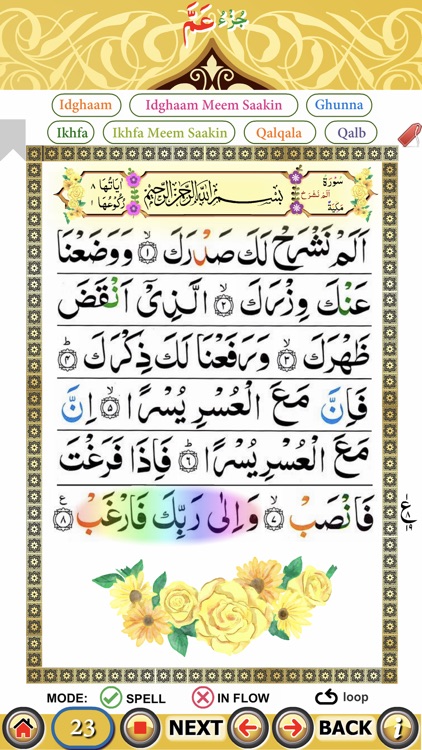 جُزْءُ عَمَّ
Idghaam Idghaam Meem Saakin Ghunna
Ikhfa Ikhfa Meem Saakin Qalqala Qalb
سُوْرَةُ اَلَمْ نَشْرَحْ مَكِّيَّةٌ بِسْمِ اللّٰهِ الرَّحْمٰنِ الرَّحِيْمِ اٰيَاتُهَا ٨ رُكُوْعُهَا ١
اَلَمْ نَشْرَحْ لَكَ صَدْرَكَ ۙ﴿١﴾ وَوَضَعْنَا
عَنْكَ وِزْرَكَ ۙ﴿٢﴾ الَّذِىْٓ اَنْقَضَ
ظَهْرَكَ ۙ﴿٣﴾ وَرَفَعْنَا لَكَ ذِكْرَكَ ؕ﴿٤﴾
فَاِنَّ مَعَ الْعُسْرِ يُسْرًا ۙ﴿٥﴾ اِنَّ
مَعَ الْعُسْرِ يُسْرًا ؕ﴿٦﴾ فَاِذَا فَرَغْتَ
فَانْصَبْ ۙ﴿٧﴾ وَاِلٰى رَبِّكَ فَارْغَبْ ﴿٨﴾ ع
ع ٨ ١٩
MODE: SPELL IN FLOW loop
23 NEXT BACK i